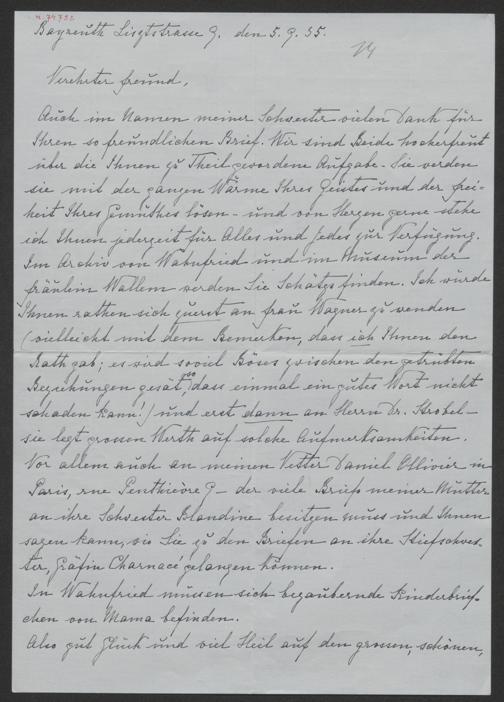 N. 74732
Bayreuth Lisztstrasse 9. den 5. 9. 35.
14
Verehrter Freund,
Auch im Namen meiner Schwester vielen Dank für
Ihren so freundlichen Brief. Wir sind Beide hocherfreut
über die Ihnen zu Theil gewordene Aufgabe. Sie werden
sie mit der ganzen Wärme Ihres Geistes und der Frei-
heit Ihres Gemüthes lösen - und von Herzen gerne stehe
ich Ihnen jederzeit für Alles und Jedes zur Verfügung.
Im Archiv von Wahnfried und im Museum der
Fräulein Wallem werden Sie Schätze finden. Ich würde
Ihnen rathen sich zuerst an Frau Wagner zu wenden
(vielleicht mit dem Bemerken, dass ich Ihnen den
Rath gab; es wird soviel Böses zwischen den getrübten
Beziehungen gesät, so dass einmal ein gutes Wort nicht
schaden kann!) und erst dann an Herrn Dr. Strobel -
sie legt grossen Werth auf solche Aufmerksamkeiten.
Vor allem auch an meinen Vetter Daniel Ollivier in
Paris, rue Penthièvre 9 - der viele Briefe meiner Mutter
an ihre Schwester Blandine besitzen muss und Ihnen
sagen kann, wie Sie zu den Briefen an ihre Stiefschwes-
ter, Gräfin Charnacé gelangen können.
In Wahnfried müssen sich bezaubernde Kinderbrief-
chen von Mama befinden.
Also gut Glück und viel Heil auf den grossen, schönen,